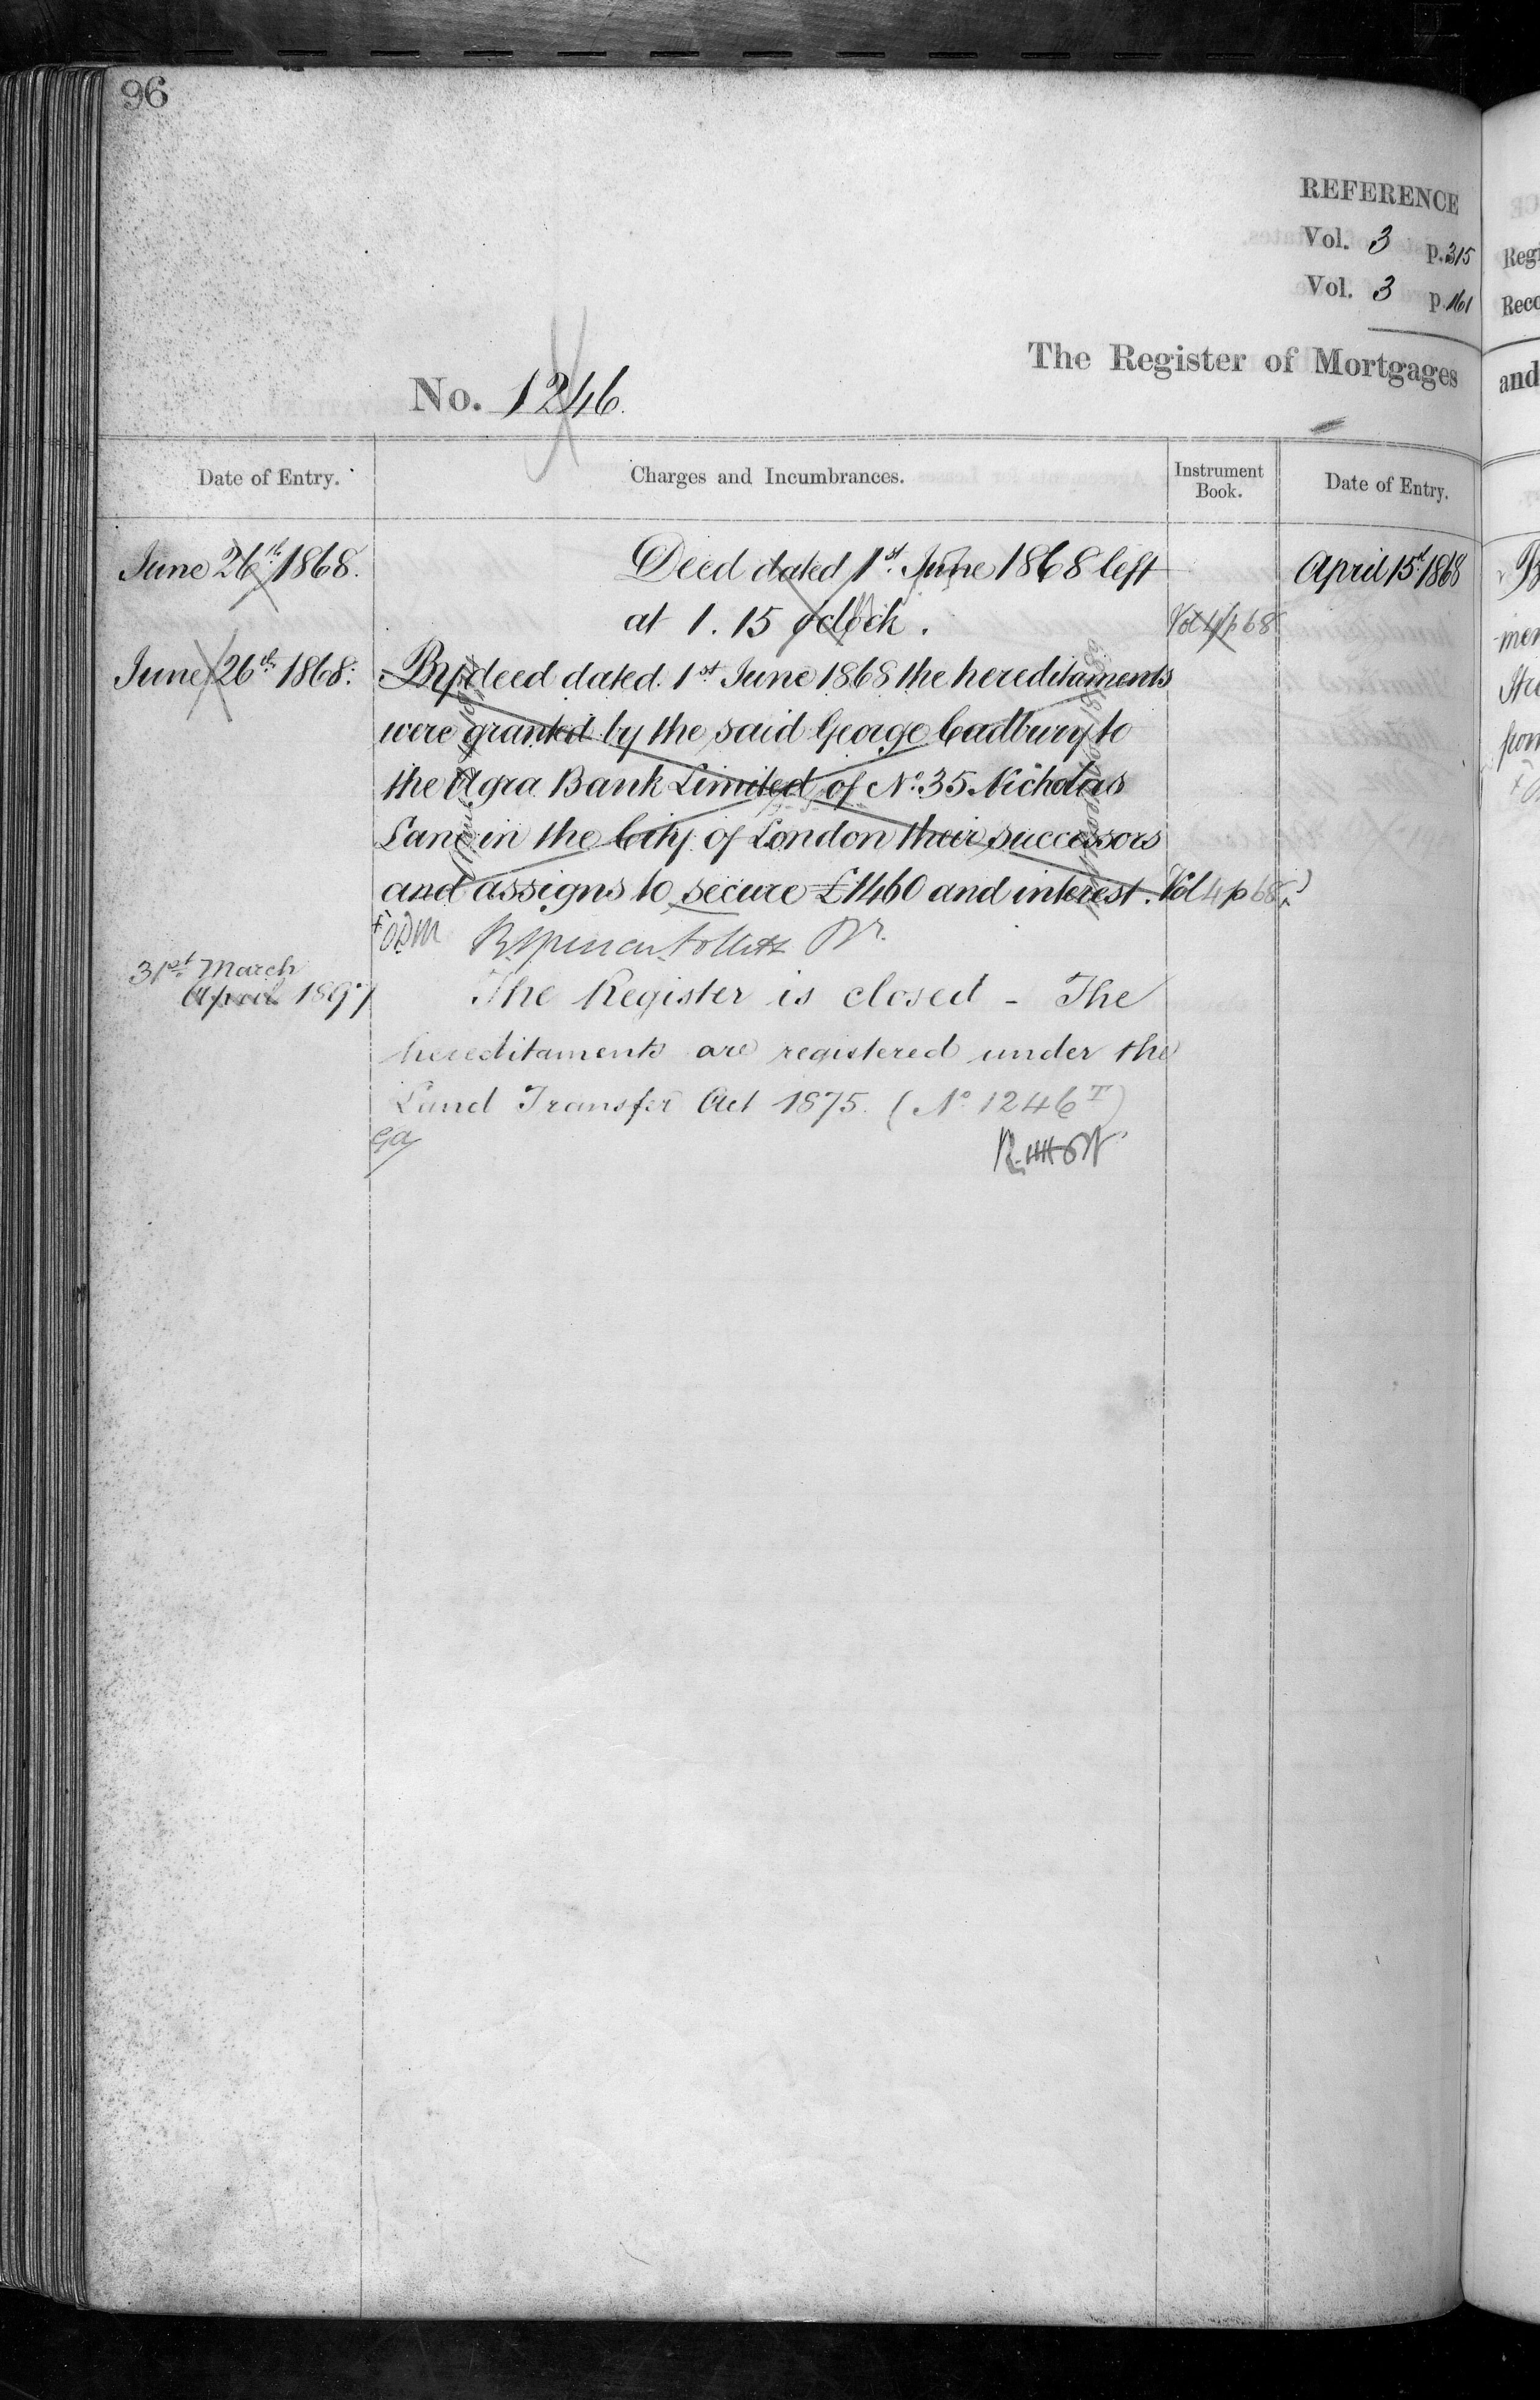 96
REFERENCE
Vol. 3 p. 315
Vol. 3 p. 161
The Register of Mortgages
No. 1246.
Date of Entry. Charges and Incumbrances. Instrument Book. Date of Entry.
June 26th 1868. Deed dated 1st June 1868 left April 15th 1868
at 1.15 o'clock. Vol 4 p 68
June 26th 1868. By deed dated 1st June 1868 the hereditaments
were granted by the said George Cadbury to
the Agra Bank Limited of No. 35 Nicholas
Lane in the City of London their successors
and assigns to secure £1460 and interest. Vol 4 p 68
31st March
April 1897 The Register is closed - The
hereditaments are registered under the
Land Transfer Act 1875. (No 1246 T)
Regi
Reco
and